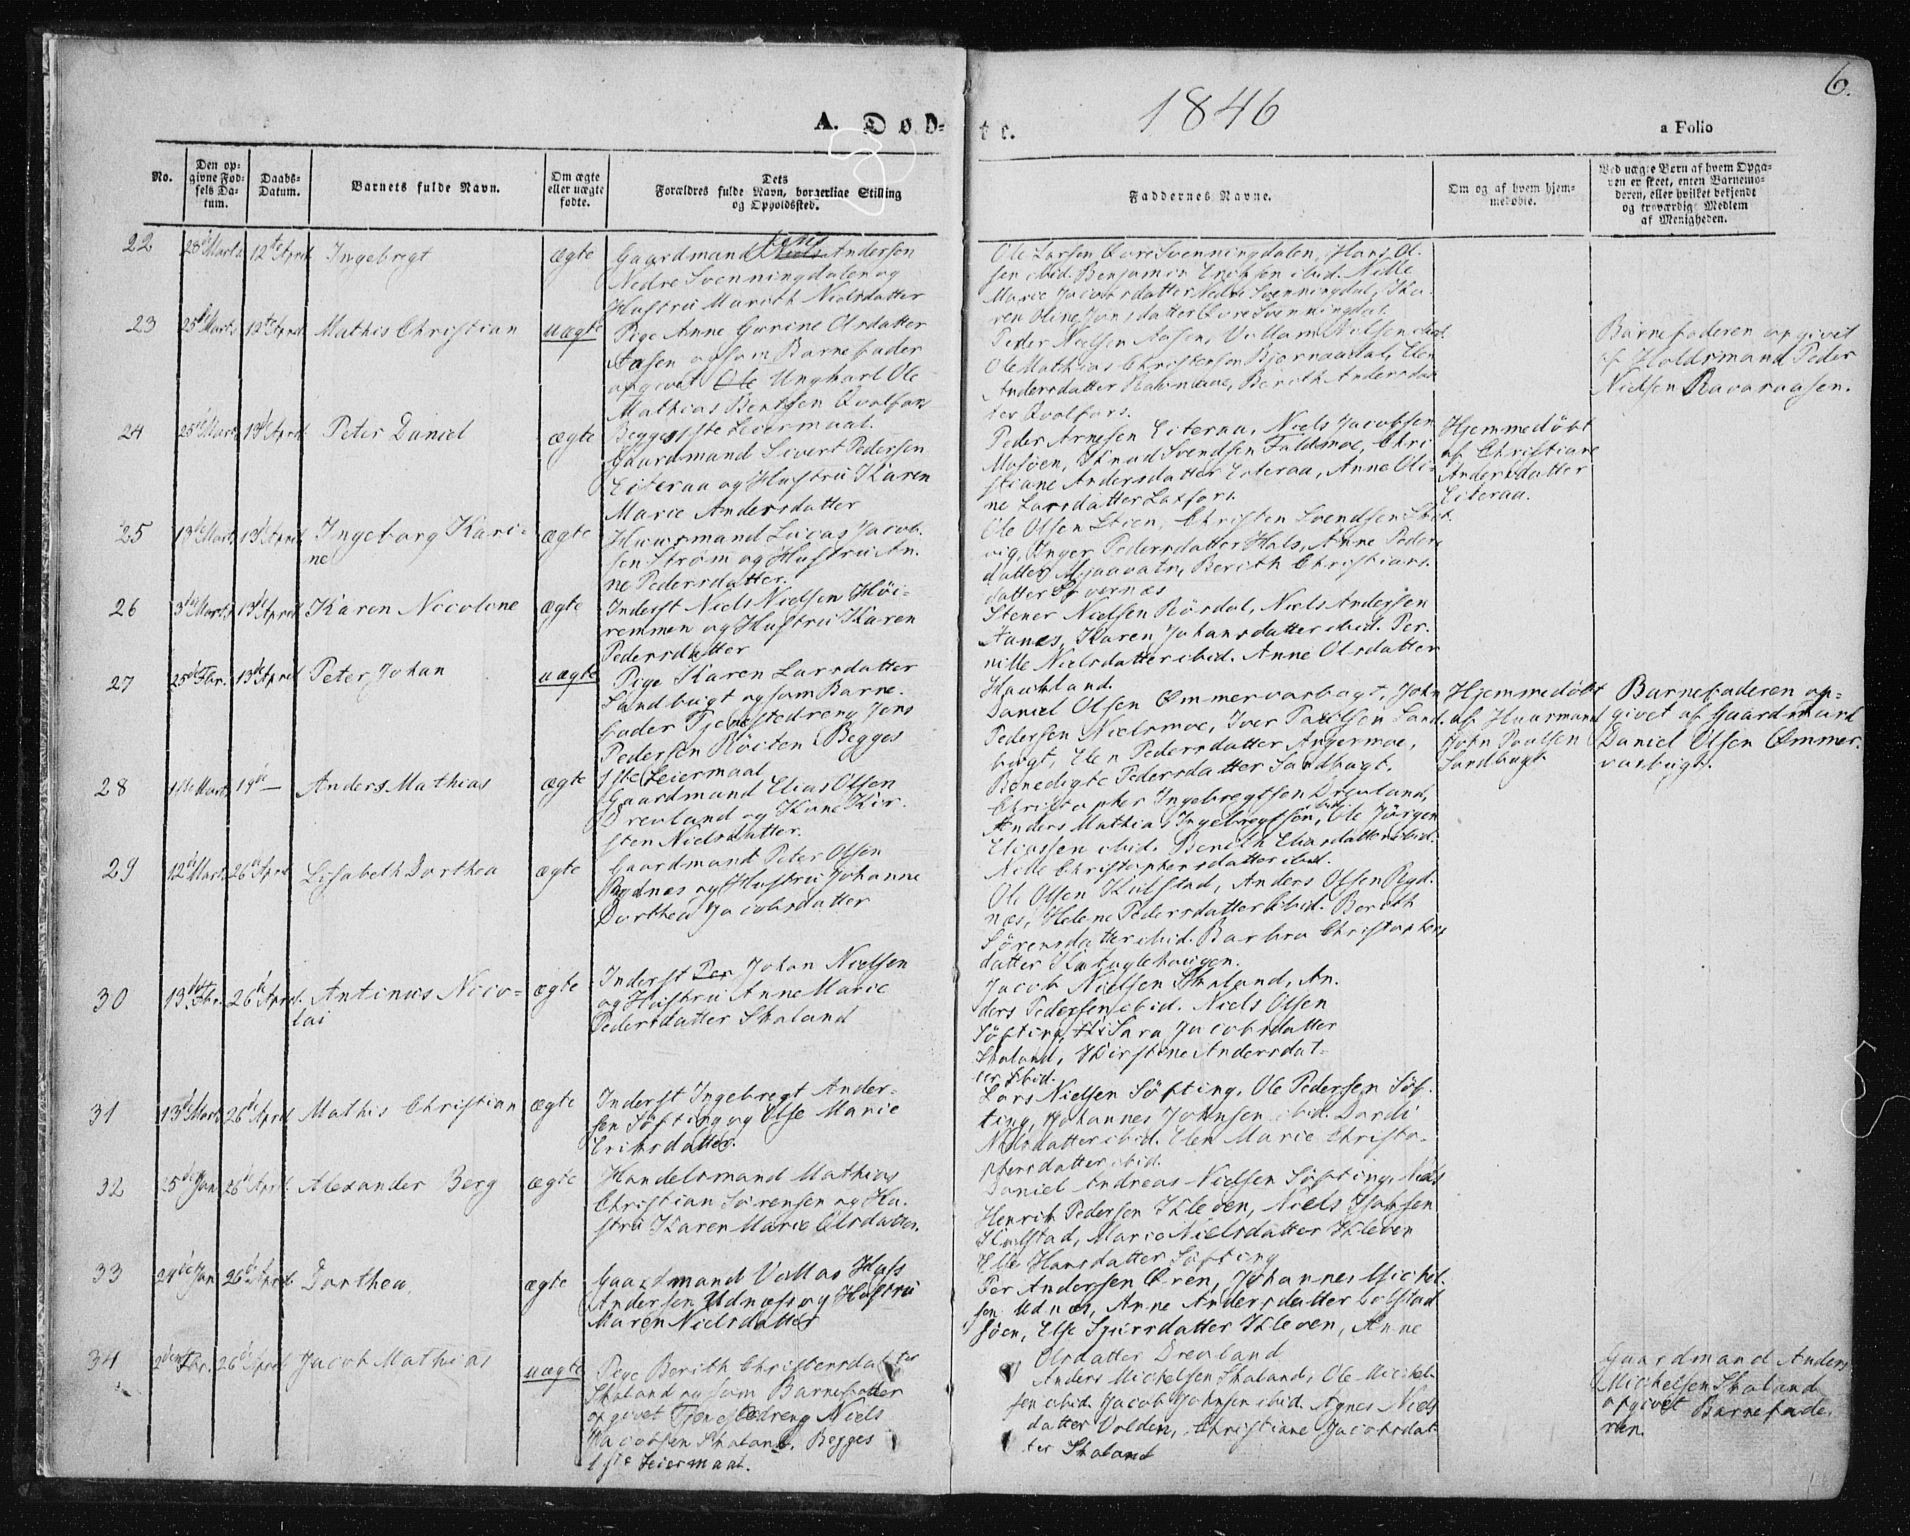 1846
6.
A. Døb-
te.
a Folio
No.
Den op-
givne Fød-
sels Da-
tum.
Daabs-
Datum.
Barnets fulde Navn.
Om ægte
eller uægte
fødte.
Dets
Forældres fulde Navn, borgerlige Stilling
og Opholdssted.
Faddernes Navne.
Om og af hvem hjem-
medøbt.
Ved uægte Børn af hvem Opga-
ven er skeet, enten Barnemo-
deren, eller hvilket bekjendt
og troværdig Medlem
af Menigheden.
22
28de Marts
12te April
Ingebregt
ægte
Gaardmand Niels Andersen
Nedre Svenningdalen og
Hustru Marith Nielsdatter
Ole Larsen Øvre Svenningdalen, Hans Ol-
sen ibid. Benjamin Erichsen ibid. Nille
Marie Jacobsdatter Nedre Svenningdal, Ka-
ren Oline Jonsdatter Øvre Svenningdal.
23
25de Marts
12te April
Mathis Christian
uægte
Pige Anne Gurine Olsdatter
Aasen og som Barnefader
opgivet Ole Ungkarl Ole
Mathias Bentsen Qvalfors
Begges 1ste Leiermaal.
Peder Nielsen Aasen, Villum Nielsen ibid.
Ole Mathias Christensen Bjørnaadal, Elen
Andersdatter Havnmoe, Berith Andersdat-
ter Qvalfors.
Barnefaderen opgivet
af Holdsmand Peder
Nielsen Ravaraasen.
24
25de Marts
13de April
Peter Daniel
ægte
Gaardmand Sivert Pedersen
Eiteraa og Hustru Karen
Marie Andersdatter
Peder Arnesen Eiteraa, Niels Jacobsen
Mosøen, Knud Svendsen Faldmoe, Chri-
stiane Andersdatter Eiteraa, Anne Oli-
ne Larsdatter Laxfors.
Hjemmedøbt
af Christiane
Andersdatter
Eiteraa.
25
13de Marts
13de April
Ingeborg Kari-
ne
ægte
Huusmand Lucas Jacob-
sen Strøm og Hustru An-
ne Pedersdatter.
Ole Olsen Steen, Christen Svendsen
vig, Inger Pedersdatter Hals, Anne Peders-
datter Mjaavatn, Berith Christians-
datter
26
3de Marts
13de April
Karen Nicoline
ægte
Inderst Niels Nielsen Høi-
remmen og Hustru Karen
Pedersdatter
Stener Nielsen Rørdal, Niels Andersen
Fanes, Karen Johansdatter ibid. Per-
nille Nielsdatter ibid. Anne Olsdatter
Haukland.
27
25de Fbr.
13de April
Peter Johan
uægte
Pige Karen Larsdatter
Sandbugt og som Barne-
fader Tjenestedreng Jens
Pedersen Røiten Begges
1ste Leiermaal
Daniel Olsen Ømmervasbugt, John
Pedersen Nielsmoe, Iver Poulsen Sand-
bugt, Elen Pedersdatter Angermoe,
Benedigte Pedersdatter Sandbugt.
Hjemmedøbt
af Huusmand
John Poulsen
Sandbugt
Barnefaderen op-
givet af Gaardmand
Daniel Olsen Ømmer-
vasbugt.
28
1ste Marts
19de —
Anders Mathias
ægte
Gaardmand Elias Olsen
Drevland og Kone Kir-
sten Nielsdatter.
Christopher Ingebregtsen Drevland,
Anders Mathias Ingebregtsen ibid, Ole Jørgen
Eliassen ibid. Berith Eliasdatter ibid.
Nille Christophersdatter ibid.
29
12de Marts
26de April
Lisabeth Dorthea
ægte
Gaardmand Peter Olsen
Rydnæs og Hustru Johanne
Dorthea Jacobsdatter
Ole Olsen Kulstad, Anders Olsen Ryd-
næs, Helene Pedersdatter ibid. Berith
Sørensdatter ibid. Barbra Christophers
datter Katuglehaugen.
30
13de Fbr.
26de April
Antinus Nico-
lai
ægte
Inderst Per Johan Nielsen
og Hustru Anne Marie
Pedersdatter Skaland
Jacob Nielsen Skaland, An-
ders Pedersen ibid. Niels Olsen
Søfting, Ki Sara Jacobsdatter
Skaland, Kirstine Andersdat-
ter ibid.
31
13de Marts
26de April
Mathis Christian
ægte
Inderst Ingebregt Ander-
sen Søfting og Else Marie
Eriksdatter.
Lars Nielsen Søfting, Ole Pedersen Søf-
ting, Johannes Johnsen ibid. Dardi
Nilsdatter ibid. Elen Marie Christo-
phersdatter ibid.
32
25de Jan
26de April
Alexander Berg
ægte
Handelsmand Mathias
Christian Sørensen og Hu-
stru Karen Marie Olsdatter.
Daniel Andreas Nielsen Søfting, Niels
Henrik Pedersen Kleven, Niels
Kulstad, Marie Nielsdatter Kleven
Else Hansdatter Søfting
33
29de Jan
26de April
Dorthea
ægte
Gaardmand
Andersen Udnæs og Hustru
Maren Nielsdatter
Per Andersen Øren, Johannes Michel-
sen Udnæs, Anne Andersdatter Dolstad
søen, Else Sjursdatter Kleven, Anne
Olsdatter Drevland
34
2den Fbr.
26de April
Jacob Mathias
uægte
Pige Berith Christensdatter
Skaland og som Barnefader
opgivet Tjenestedreng Niels
Jacobsen Skaland. Begges
1ste Leiermaal.
Anders Michelsen Skaland, Ole Michel-
sen ibid. Jacob Johnsen ibid. Agnes Niels
datter Volden, Christiane Jacobsdat-
ter Skaland
Gaardmand Anders
Michelsen Skaland
opgivet Barnefade-
ren.